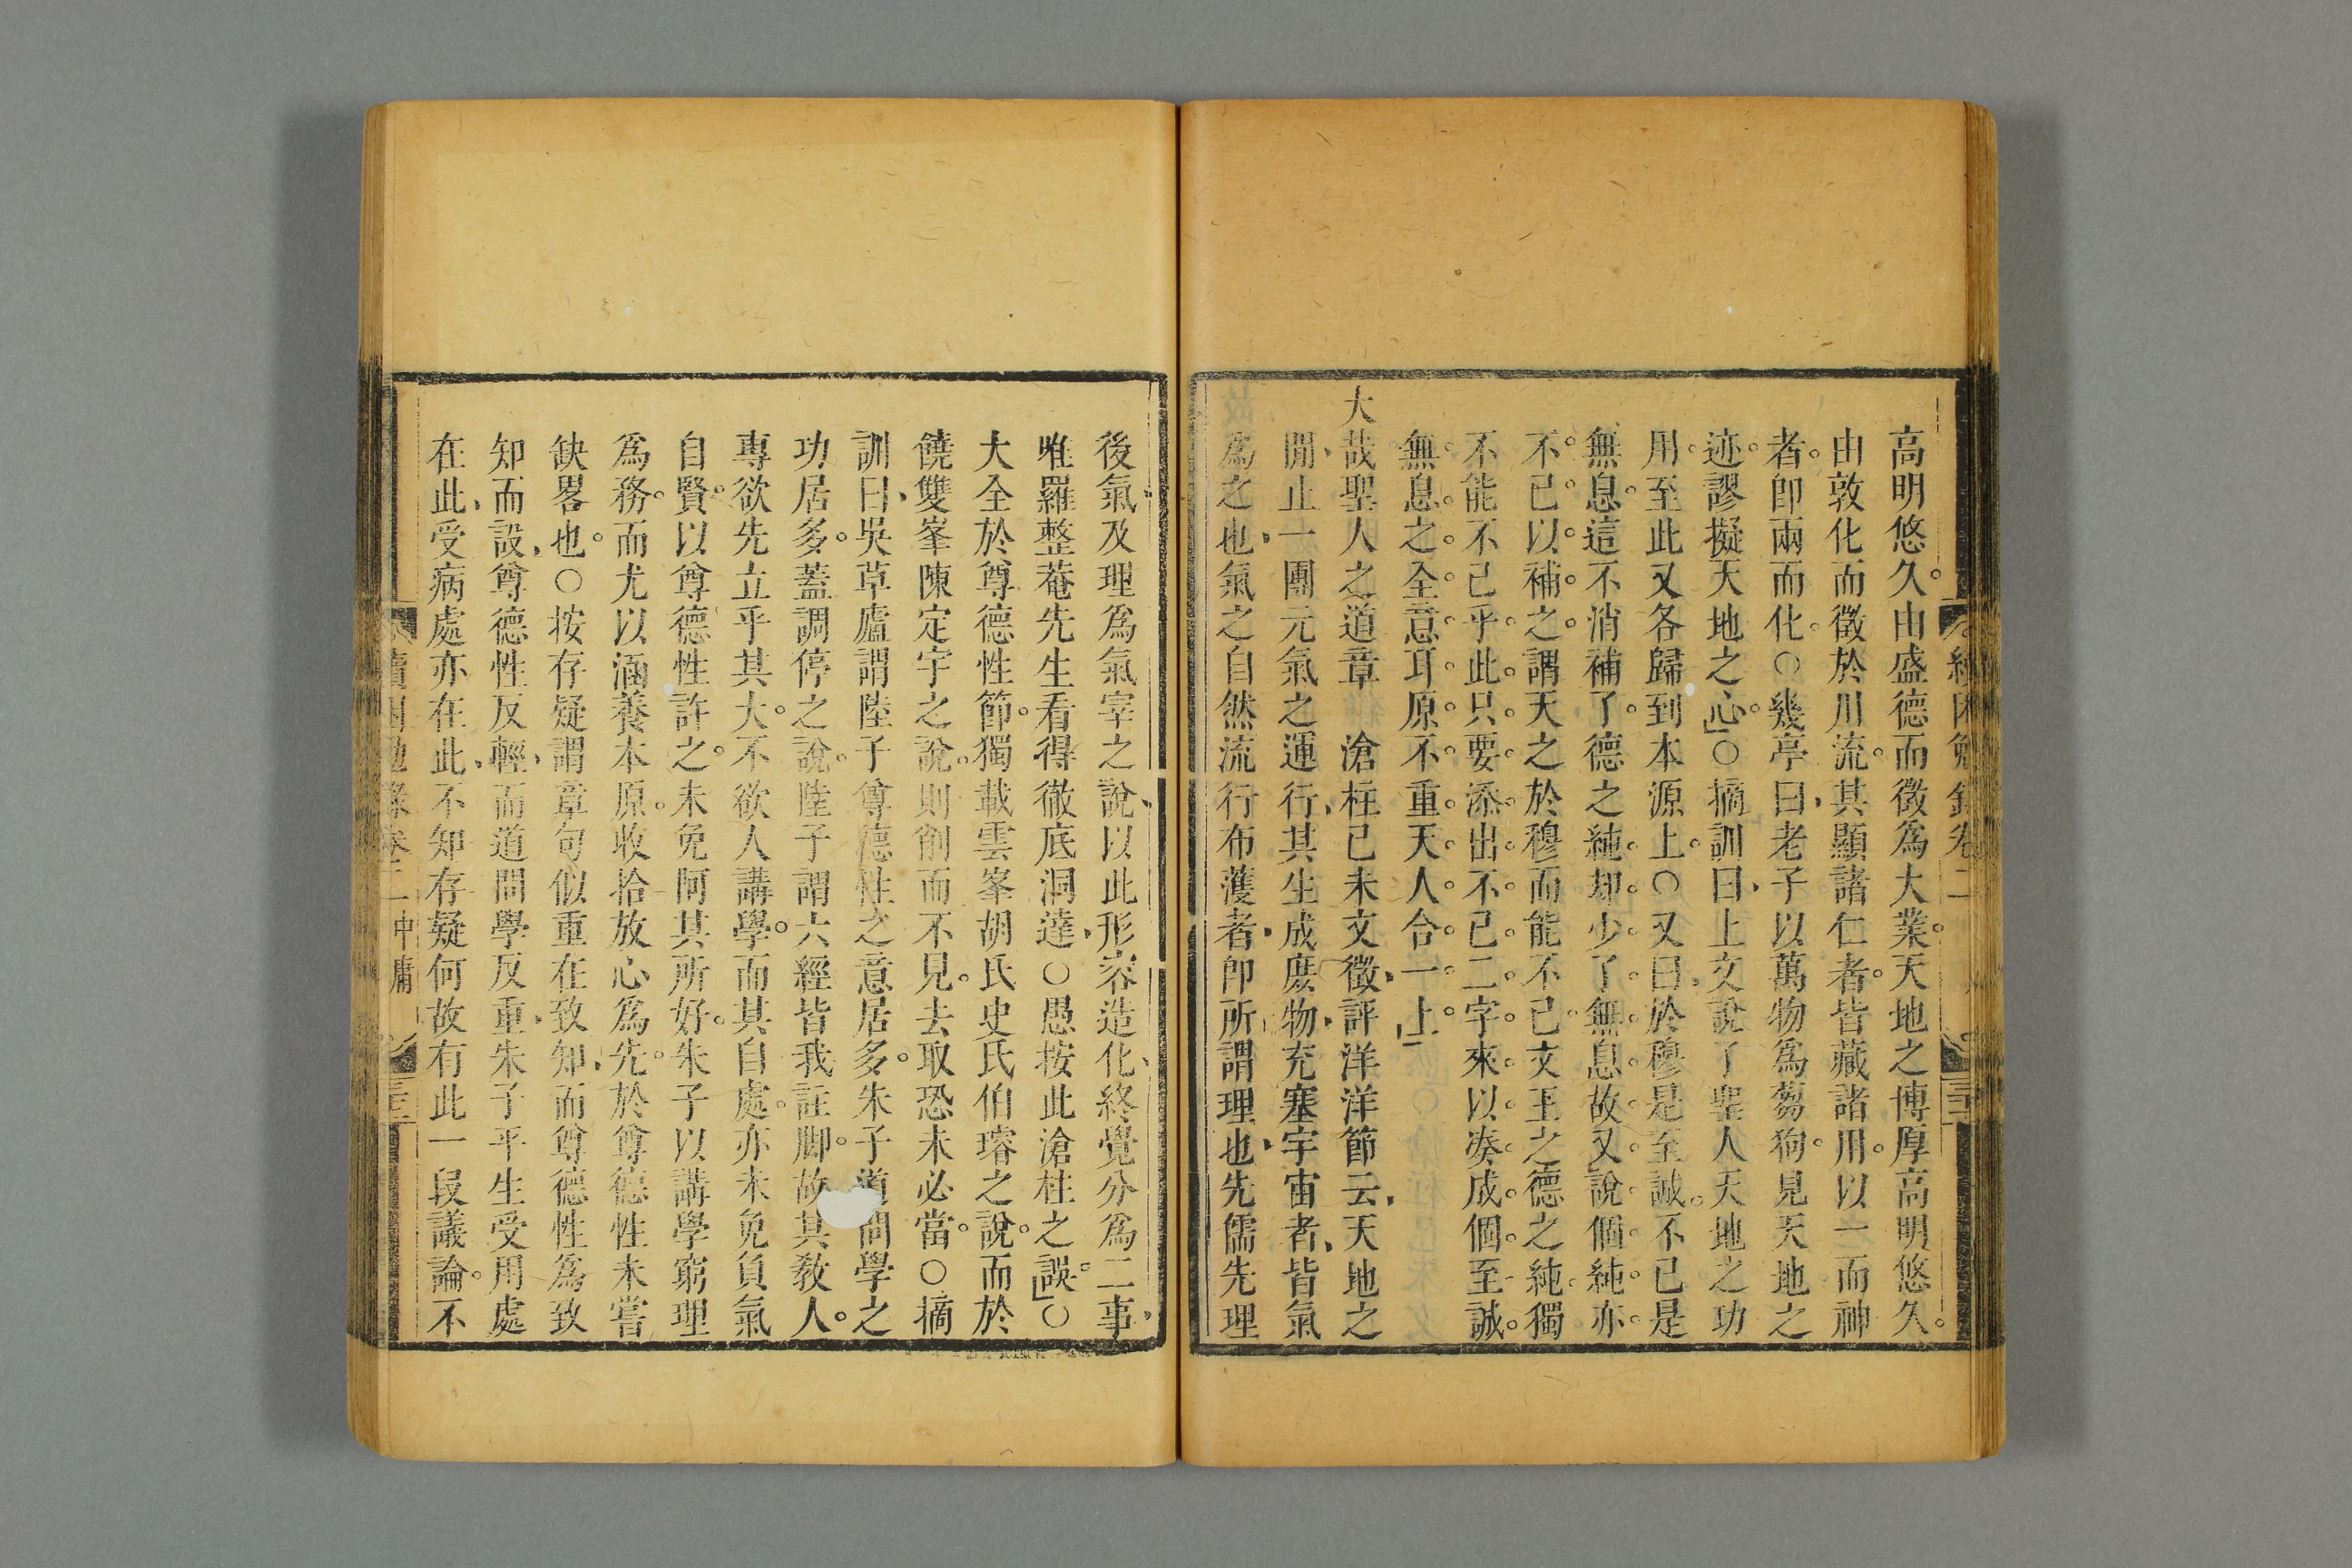 高明悠久由盛德而徵爲大業天地之博厚高明悠久
由敦化而徵於川流其顯諸仁者皆藏諸用以一而神
者卽兩而化○幾亭曰老子以萬物爲芻狗見天地之
迹謬擬天地之心○摘訓曰上文說了聖人天地之功
用至此又各歸到本源上○又曰於穆是至誠不已是
無息這不消補了德之純却少了無息故又說個純亦
不已以補之謂天之於穆而能不已文王之德之純獨
不能不已乎此只要添出不已二字來以湊成個至誠
無息之全意耳原不重天人合一上
大哉聖人之道章　滄柱己未文徵評洋洋節云天地之
間止一團元氣之運行其生成庶物充塞宇宙者皆氣
爲之也氣之自然流行布濩者卽所謂理也先儒先理
後氣及理爲氣宰之說以此形容造化終覺分爲二事
唯羅整菴先生看得徹底洞達○愚按此滄柱之誤○
大全於尊德性節獨載雲峯胡氏史氏伯璿之說而於
饒雙峯陳定宇之說則削而不見去取恐未必當○摘
訓曰吳草廬謂陸子尊德性之意居多朱子道問學之
功居多蓋調停之說陸子謂六經皆我註脚故其敎人
專欲先立乎其大不欲人講學而其自處亦未免負氣
自賢以尊德性許之未免阿其所好朱子以講學窮理
爲務而尤以涵養本原收拾放心爲先於尊德性未嘗
缺畧也○按存疑謂章句似重在致知而尊德性爲致
知而設尊德性反輕而道問學反重朱子平生受用處
在此受病處亦在此不知存疑何故有此一段議論不
續困勉錄卷二 中庸